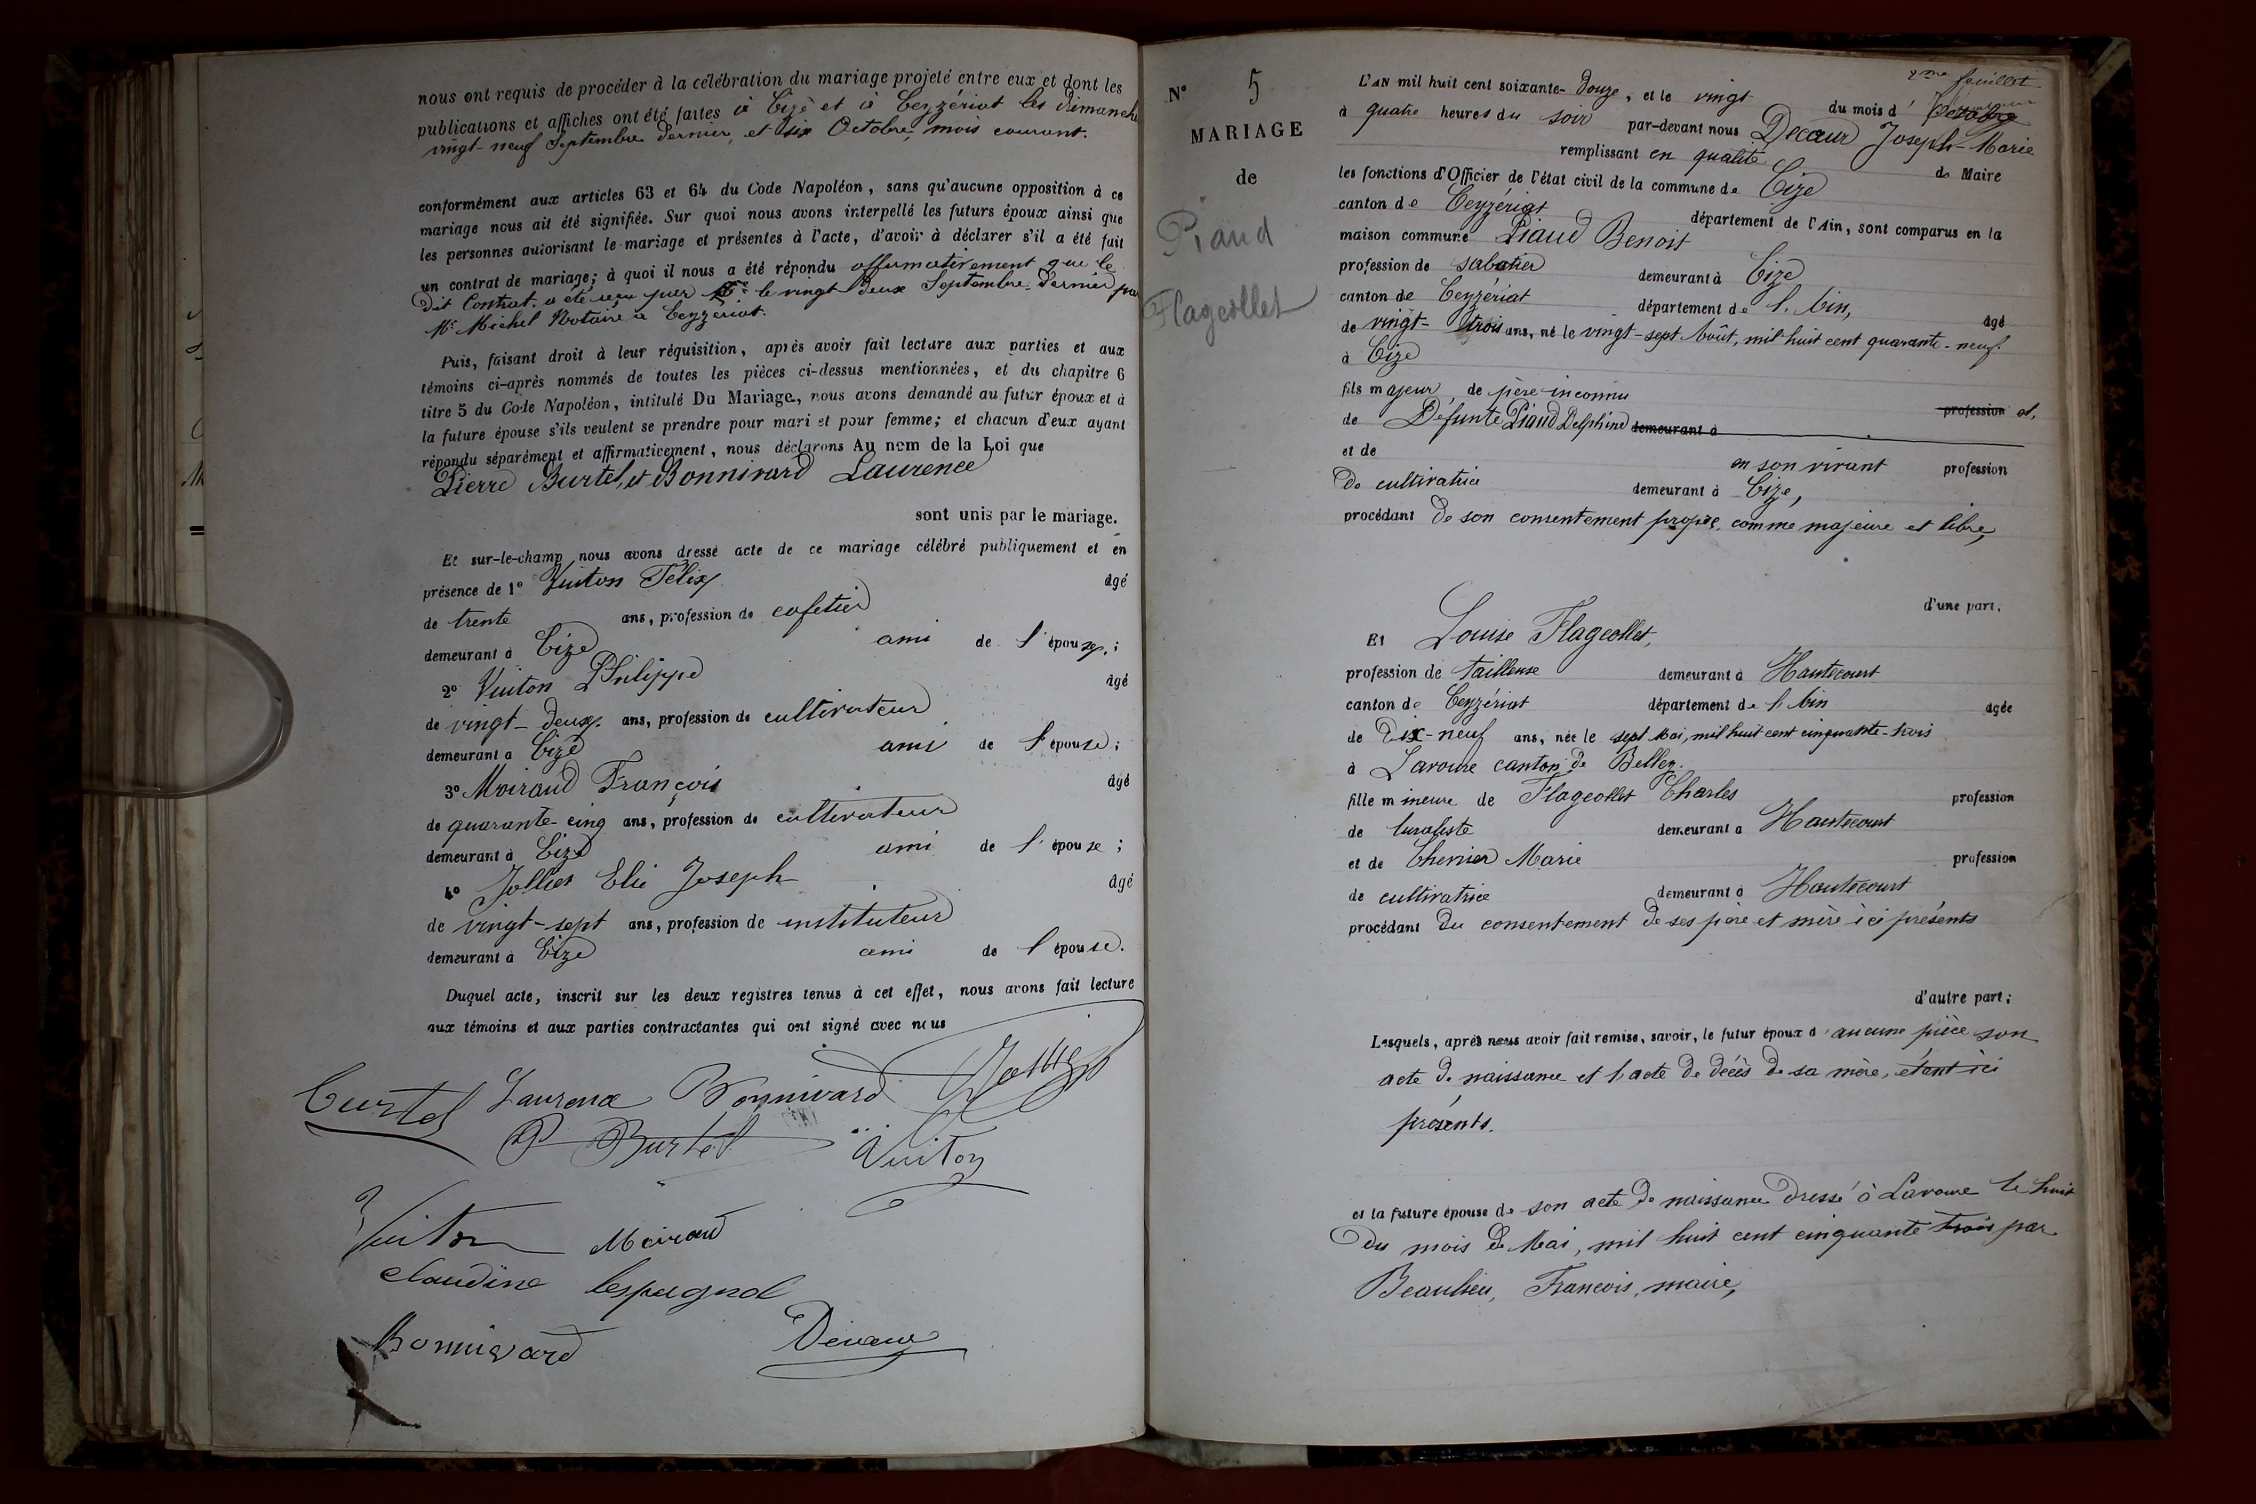 nous ont requis de procéder à la célébration du mariage projeté entre eux et dont les
publications et affiches ont été faites à Cize et à Ceyzériat les dimanche
vingt-neuf Septembre dernier, et six Octobre, mois courant.
conformément aux articles 63 et 64 du Code Napoléon, sans qu'aucune opposition à ce
mariage nous ait été signifiée. Sur quoi nous avons interpellé les futurs époux ainsi que
les personnes autorisant le mariage et présentes à l'acte, d'avoir à déclarer s'il a été fait
un contrat de mariage; à quoi il nous a été répondu affirmativement que le
dit Contrat a été reçu par le vingt deux Septembre dernier par
Me Michel Notaire à Ceyzériat.
Puis, faisant droit à leur réquisition, après avoir fait lecture aux parties et aux
témoins ci-après nommés de toutes les pièces ci-dessus mentionnées, et du chapitre 6
titre 5 du Code Napoléon, intitulé Du Mariage, nous avons demandé au futur époux et à
la future épouse s'ils veulent se prendre pour mari et pour femme; et chacun d'eux ayant
répondu séparément et affirmativement, nous déclarons Au nom de la Loi que
Pierre Burtel, et Bonnivard Laurence
sont unis par le mariage.
Et sur-le-champ nous avons dressé acte de ce mariage célébré publiquement et en
présence de 1° Vuiton Félix âgé
de trente ans, profession de cafetier
demeurant à Cize ami de l'époux;
2° Vuiton Philippe âgé
de vingt-deux ans, profession de cultivateur
demeurant à Cize ami de l'épouse;
3° Moiraud François âgé
de quarante-cinq ans, profession de cultivateur
demeurant à Cize ami de l'épouse;
4° Jollier Elie Joseph âgé
de vingt-sept ans, profession de instituteur
demeurant à Cize ami de l'épouse.
Duquel acte, inscrit sur les deux registres tenus à cet effet, nous avons fait lecture
aux témoins et aux parties contractantes qui ont signé avec nous
Curtel Laurence Bonnivard Jollier
P Burtel Vuiton
Vuiton Moiraud
Claudine Lespagnol
Bonnivard Decœur
N° 5
MARIAGE
de
Piaud
Flageollet
2me feuillet
L'AN mil huit cent soixante-douze, et le vingt du mois d'Octobre
à quatre heures du soir par-devant nous Decœur Joseph-Marie
remplissant en qualité de Maire
les fonctions d'Officier de l'état civil de la commune de Cize
canton de Ceyzériat département de l'Ain, sont comparus en la
maison commune Piaud Benoit
profession de sabotier demeurant à Cize
canton de Ceyzériat département de l'Ain, âgé
de vingt-trois ans, né le vingt-sept Août, mil huit cent quarante-neuf
à Cize
fils majeur, de père inconnu
profession et,
de Défunte Piaud Delphine demeurant à
et de en son vivant profession
de cultivatrice demeurant à Cize,
procédant de son consentement propre comme majeure et libre,
d'une part,
Et Louise Flageollet,
profession de tailleuse demeurant à Hautecourt
canton de Ceyzériat département de l'Ain âgée
de dix-neuf ans, née le sept Mai, mil huit cent cinquante-trois
à Lavoure canton de Belley.
fille mineure de Flageollet Charles profession
de buraliste demeurant à Hautecourt
et de Chenier Marie profession
de cultivatrice demeurant à Hautecourt
procédant du consentement de ses père et mère ici présents
d'autre part;
Lesquels, après nous avoir fait remise, savoir, le futur époux d'aucune pièce son
acte de naissance et l'acte de décès de sa mère, étant ici
présents.
et la future épouse de son acte de naissance dressé à Lavoure le huit
du mois de Mai, mil huit cent cinquante trois par
Beaulieu, François, maire,